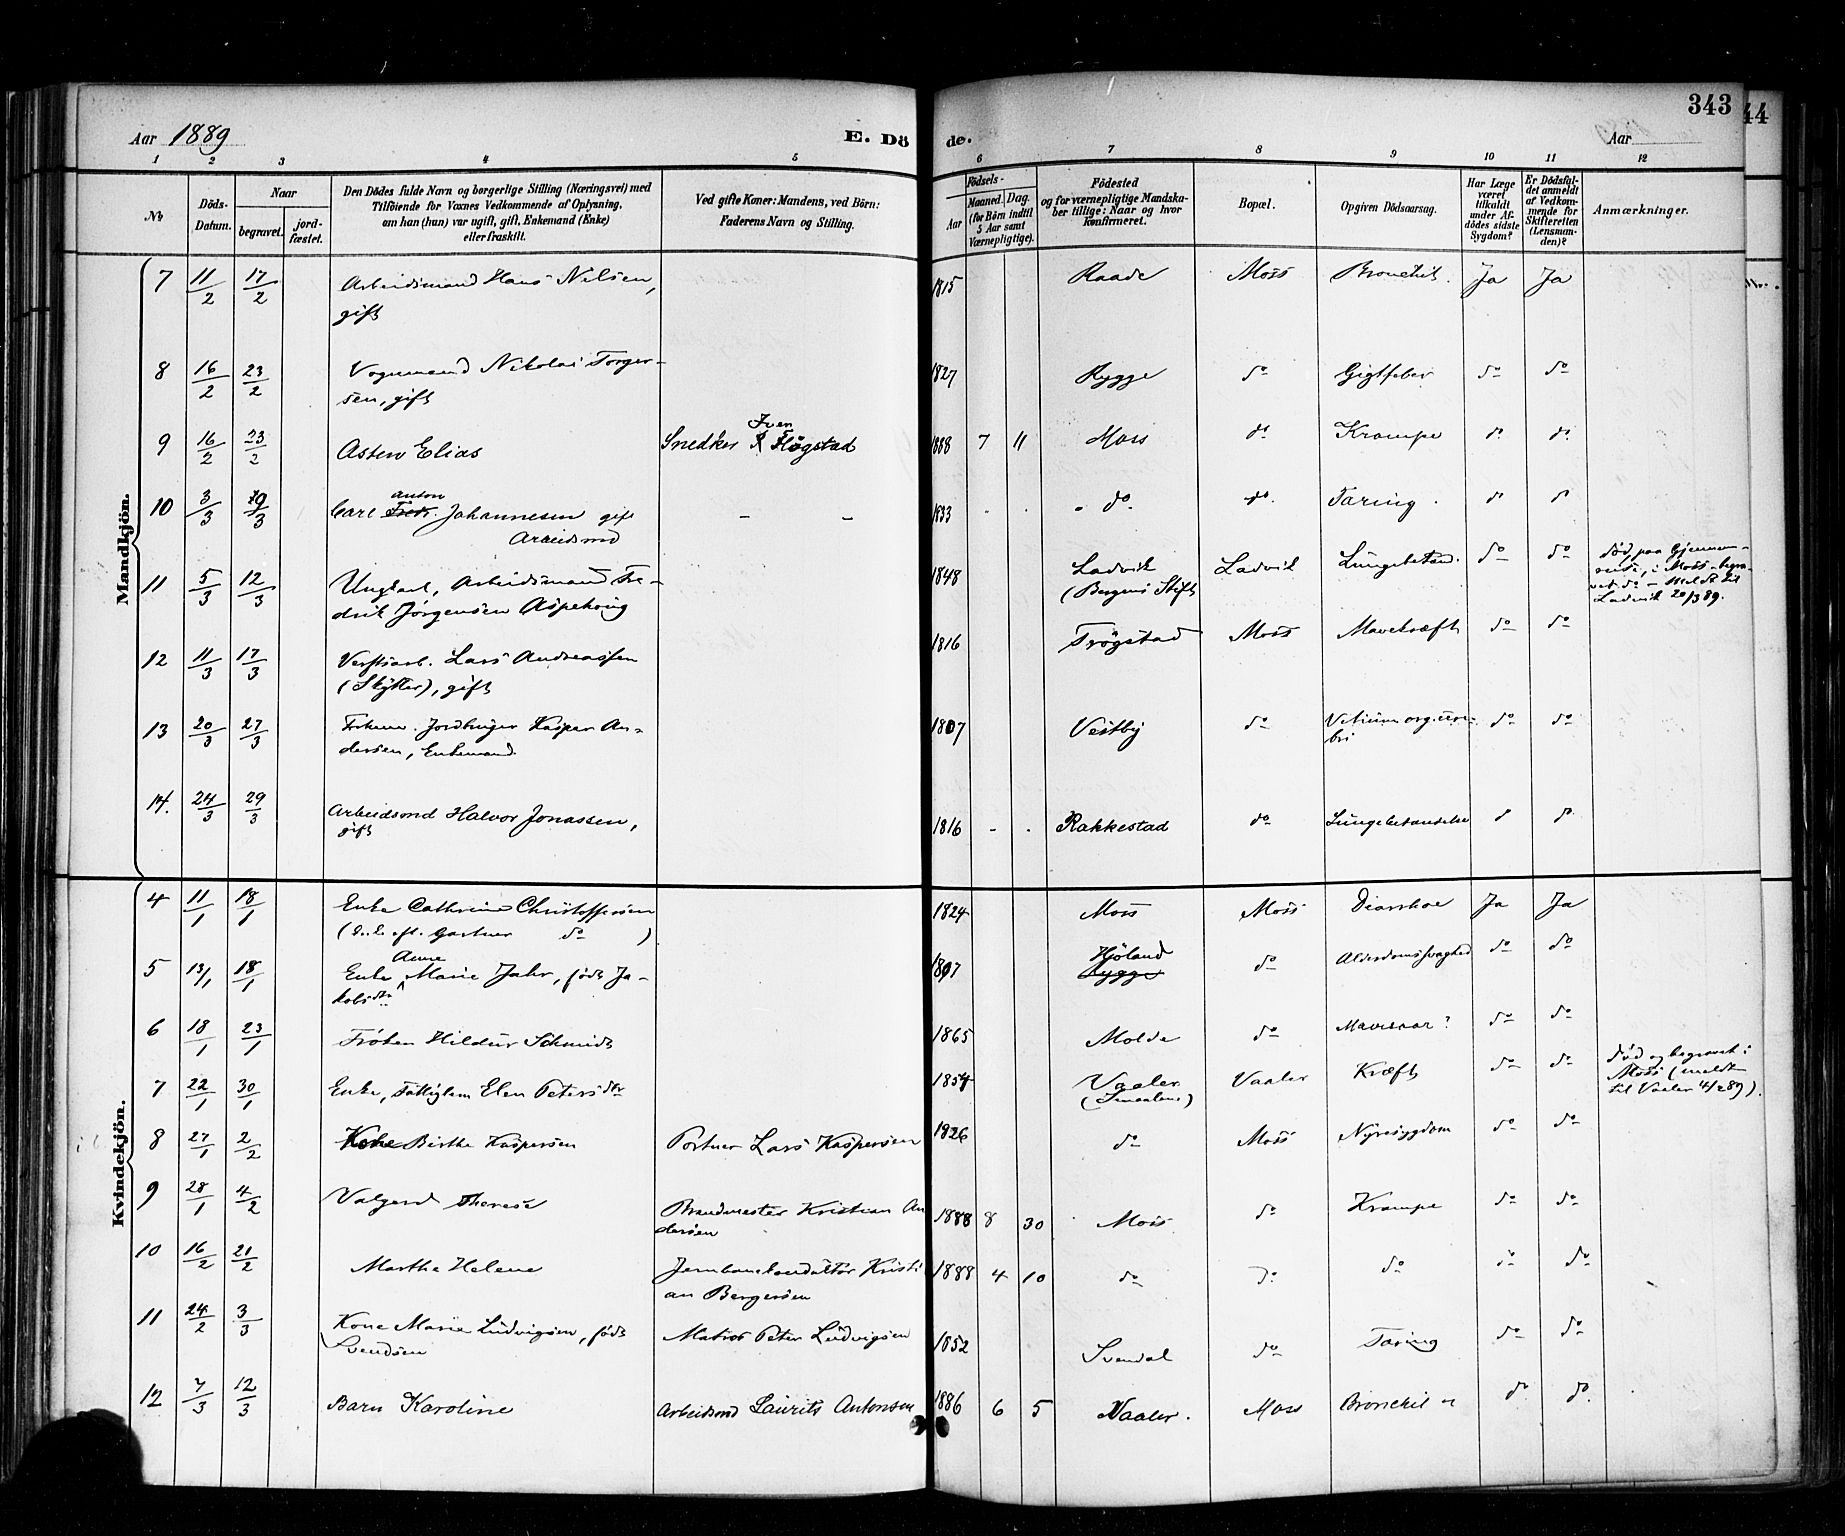 343
44
Aar 1889
E. Dö
de.
Aar
1 2 3 4 5 6 7 8 9 10 11 12
No
Döds-Datum.
Naar
begravet.
jord-fæstet.
Den Dödes fulde Navn og borgerlige Stilling (Næringsvei) med
Tilföiende for Voxnes Vedkommende af Oplysning,
om han (hun) var ugift, gift, Enkemand (Enke)
eller fraskilt.
Ved gifte Koner: Mandens, ved Börn:
Faderens Navn og Stilling.
Födsels-
Aar
Maaned. Dag.
(for Börn indtil
5 Aar samt
Værnepligtige).
Födested
og for værnepligtige Mandska-
ber tillige: Naar og hvor
konfirmeret.
Bopæl.
Opgiven Dödsaarsag.
Har Læge
været
tilkaldt
under Af-
dödes sidste
Sygdom?
Er Dödsfal-
det anmeldt
af Vedkom-
mende for
Skifteretten
(Lensman-
den)?
Anmærkninger.
Mandkjön.
7 11/2 17/2 Arbeidsmand Hans Nilsen, 1815 Raade Moss Bronchit. Ja Ja
gift
8 16/2 23/2 Vognmand Nikolai Torger- 1827 Rygge do Gigtfeber do do
sen, gift
Iver
9 16/2 23/2 Asten Elias Snedker Høgstad 1888 7 11 Moss do Krampe do do
Anton
10 3/3 10/3 Carl Fredr. Johannesen gift - - 1833 do. do. Tæring. do do
Arbeidsmd
11 5/3 12/3 Ungkarl, Arbeidsmand Fre- 1848 Ladvik Ladvik Lungebetænd. do do død paa Gjennem-
drik Jørgensen Aspehoug (Bergens Stift reise, i Moss - begra-
vet do - meldt til
Ladvik 20/3 89.
12 11/3 17/3 Verftsarb. Lars Andreassen 1816 Trøgstad Moss Mavekræft do do
(Skytter), gift
13 20/3 27/3 Jordbruger Kasper An- 1807 Vestby do Vitium org. cere- do do
dersen, Enkemand. bri
14. 24/3 29/3 Arbeidsmd Halvor Jonassen, 1816 - . Rakkestad do Lungebetændelse do do
gift
Kvindekjön.
4 11/1 18/1 Enke Cathrine Christoffersen 1824 Moss Moss Diarrhoe Ja Ja
(d. e. eft. Gartner do )
Anne
5 13/1 18/1 Enke Marie Jahr, født Ja- 1807 Hjøland do Alderdomssvaghed do do
kobsdtr Rygge
6 18/1 23/1 Frøken Hildur Schmidt 1865 Molde do Mavesaar? do do
7 22/1 30/1 Enke, Fattiglem Elen Petersdtr 1854 Vaaler Vaaler Kræft do do død og begravet i
Moss (meldt
til Vaaler 4/2 89).
8 27/1 2/2 Kone Birthe Kaspersen Portner Lars Kaspersen 1826 do Moss Nyresygdom do do
9 28/1 4/2 Valgerd Therese Brandmester Kristian An 1888 8 30 Moss do Krampe do do
dersen
10 16/2 21/2 Marthe Helene Jernbanekonduktør Kristi 1888 4 10 do do do do do
an Bergersen
11 24/2 3/3 Kone Marie Ludvigsen, født Matros Peter Ludvigsen 1852 Svendal do Tæring do do
Svendsen
12 7/3 12/3 Barn Karoline Arbeidsmd Laurits Antonsen 1886 6 5 Vaaler. Moss Bronchit do do.